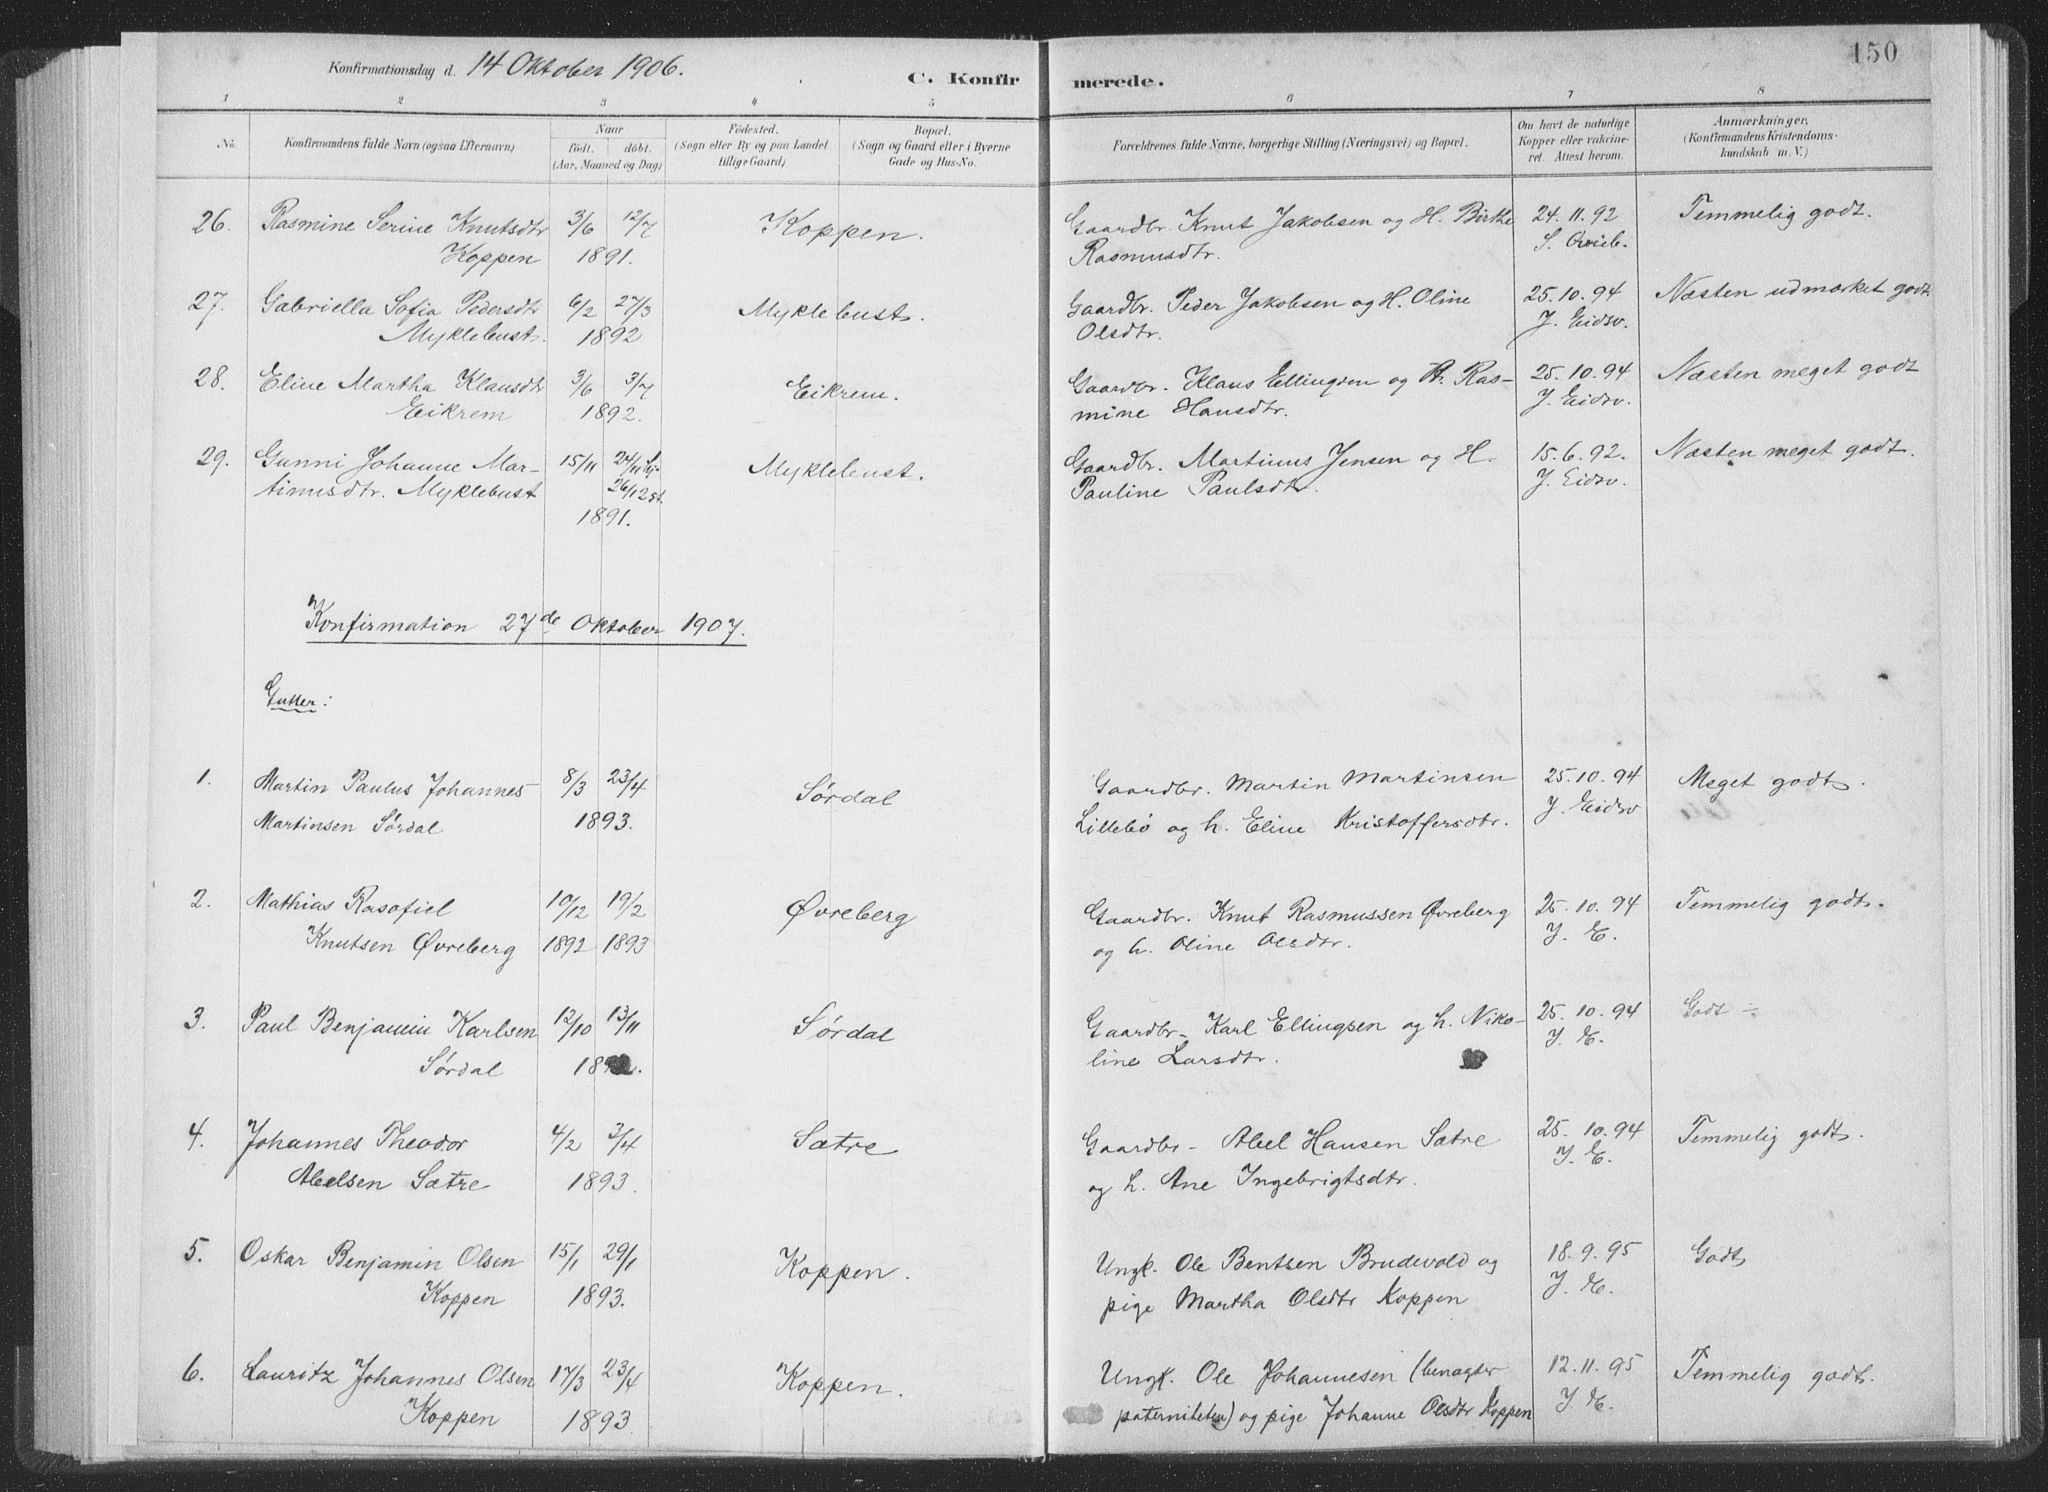 150
Konfirmationsdag d. 14 Oktober 1906.
C. Konfirmerede.
1 2 3 4 5 6 7 8
No. Konfirmandens fulde Navn (ogsaa Efternavn) Naar født. døbt. (Aar, Maaned og Dag) Fødested. (Sogn eller By og paa Landet tillige Gaard) Bopæl. (Sogn og Gaard eller i Byerne Gade og Hus-No. Forældrenes fulde Navne, borgerlige Stilling (Næringsvei) og Bopæl. Om havt de naturlige Kopper eller vakcineret. Attest herom. Anmærkninger. (Konfirmandens Kristendomskundskab m. V.)
26. Rasmine Serine Knutsdtr 3/6 12/7 Koppen. Gaardbr. Knut Jakobsen og H. Birthe 24.11.92 Temmelig godt.
Koppen 1891. Rasmusdtr.
27. Gabriella Sofia Pedersdtr 6/2 27/3 Myklebust. Gaardbr. Peder Jakobsen og H. Oline 25.10.94 Næsten udmærket godt
Myklebust. 1892 Olsdtr. J. Eidsv.
28. Eline Martha Klausdtr 3/6 3/7 Eikrem. Gaardbr. Klaus Ellingsen og H. Ras- 25.10.94 Næsten meget godt
Eikrem 1892. mine Hansdtr. J. Eidsv.
29. Gunni Johanne Mar- 15/11 24/11 Hj. Myklebust. Gaardbr. Martinus Jensen og H. 15.6.92. Næsten meget godt.
tinusdtr. Myklebust 26/12 st. Pauline Paulsdtr. J. Eidsv.
1891.
Konfirmation 27de Oktober 1907.
Gutter:
1. Martin Paulus Johannes 8/3 23/4 Sørdal Gaardbr. Martin Martinsen 25.10.94 Meget godt.
Martinsen Sørdal 1893. Lillebø og h. Eline Kristoffersdtr. J. Eidsv
2. Mathias Rasofiel 10/12 19/2 Øvreberg Gaardbr. Knut Rasmussen Øvreberg 25.10.94 Temmelig godt.
Knutsen Øvreberg 1892 1893 og h. Oline Olsdtr. J. E.
3. Paul Benjamin Karlsen 12/10 13/11 Sørdal Gaardbr- Karl Ellingsen og h. Niko- 25.10.94 Godt ÷
Sørdal line Larsdtr. J. E.
4. Johannes Theodor 4/2 3/4 Sætre Gaardbr- Abel Hansen Sætre 25.10.94 Temmelig godt.
Abelsen Sætre 1893. og h. Ane Ingebrigtsdtr. J. E.
5. Oskar Benjamin Olsen 15/1 29/1 Koppen. Ungk. Ole Bentsen Brudevold og 18.9.95 Godt
Koppen 1893. pige Martha Olsdtr Koppen J. E.
6. Lauritz Johannes Olsen 17/3 23/4 Koppen. Ungk. Ole Johannesen (benægter 12.11.95 Temmelig godt.
Koppen 1893 paterniteten) og pige Johanne Olsdtr Koppen J. E.